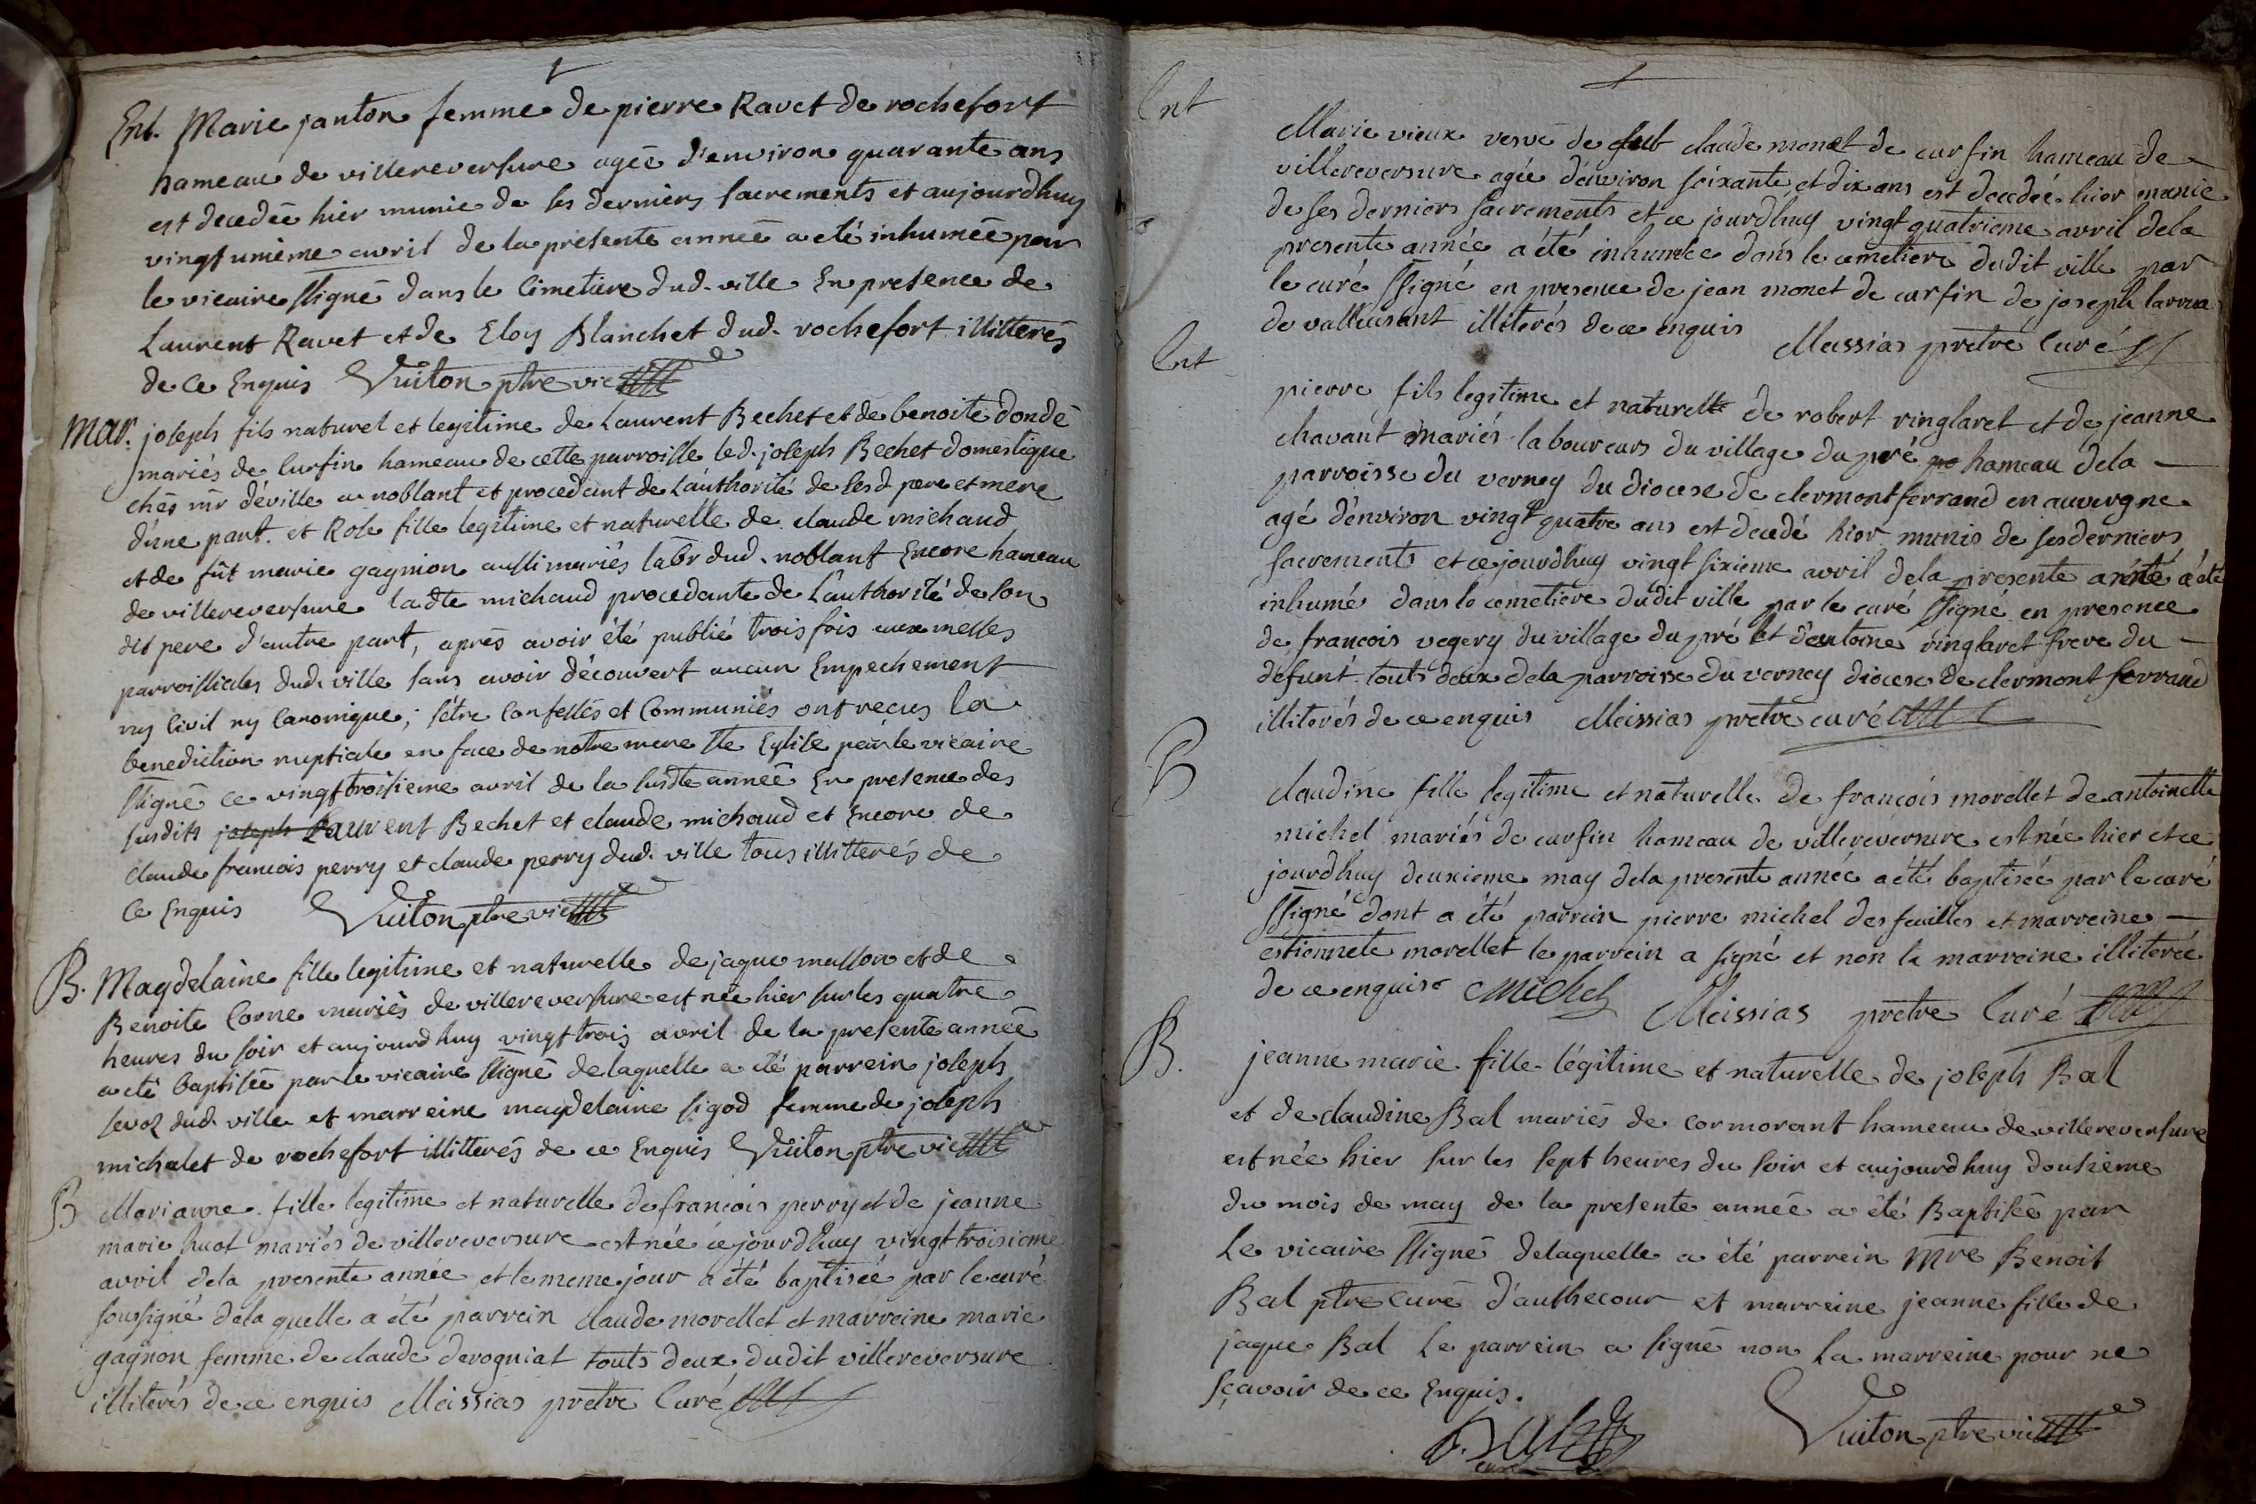 Ent. Marie janton femme de pierre Ravet de rochefort
hameau de villereversure ageé d'environ quarante ans
est decedeé hier munie de ses derniers sacrements et aujourdhuy
vingt unième avril de la presente anneé a eté inhumeé par
le vicaire ssigné dans le Cimetiere dud. ville En presence de
Laurent Ravet et de Eloy Blanchet dud. rochefort illitterés
de ce Enquis Vuiton ptre vic
Mar. joseph fils naturel et legitime de Laurent Bechet et de benoite dondé
mariés de Curfin hameau de cette parroisse led. joseph Bechet domestique
chés mr déville a noblant et procedant de L'authorité de sesd pere et mere
d'une part. et Rose fille legitime et naturelle de claude michaud
et de fût marie gagnion aussi mariés labr dud. noblant Encore hameau
de villereversure ladte michaud procedante de L'authorité de son
dit pere d'autre part, aprés avoir été publié trois fois aux messes
parroissiales dud. ville sans avoir découvert aucun Empechement
ny Civil ny Canonique; s'étre Confessés et Communiés ont recus la
benediction nuptiale en face de notre mere ste Eglise par le vicaire
ssigné ce vingt troisieme avril de la susdte anneé En presence des
susdits joseph Laurent Bechet et claude michaud et Encore de
claude francois perry et claude perry dud. ville tous illitterés de
Ce Enquis Vuiton ptre vic
B. Magdelaine fille legitime et naturelle de jaque masson et de
Benoite Corne mariés de villereversure est neé hier sur les quatre
heures du soir et aujourdhuy vingt trois avril de la presente anneé
a eté baptiseé par le vicaire ssigné delaquelle a eté parrein joseph
sevoz dud. ville et marreine magdelaine sigod femme de joseph
michalet de rochefort illitterés de ce Enquis Vuiton ptre vic
B Marianne fille legitime et naturelle de francois perry et de jeanne
marie huot mariés de villereversure est née cejourdhuy vingt troisieme
avril dela presente année et le meme jour a été baptisée par le curé
soussigné dela quelle a été parrein claude morellet et marreine marie
gagnon femme de claude derogniat touts deux dudit villereversure
illiterés de ce enquis Meissias pretre Curé
Ent
Marie vieux vesve de fut claude monet de curfin hameau de
villereversure agée d'environ soixante et dix ans est decedeé hier munie
de ses derniers sacrements et ce jourdhuy vingt quatrieme avril dela
presente année a été inhumée dans le cemetiere dudit ville par
le curé ssigné en presence de jean monet de curfin de joseph larrua
de valleusant illiterés de ce enquis Meissias pretre Curé
Ent
pierre fils legitime et naturelle de robert ringlaret et de jeanne
chavant mariés laboureurs du village du pré hameau dela
parroisse du verney du diocese de clermontferrand en auvergne
agé d'environ vingt quatre ans est decedé hier munis de ses derniers
sacrements et cejourdhuy vingt sixieme avril dela presente année a été
inhumé dans le cemetiere dudit ville par le curé ssigné en presence
de francois vegery du village du pré et d'antoine ringlaret frere du
defunt touts deux dela parroisse du verney diocese de clermont ferrand
illiterés de ce enquis Meissias pretre curé
B
claudine fille legitime et naturelle de francois morellet de antoinette
michel mariés de curfin hameau de villereversure est née hier et ce
jourdhuy deuxieme may dela presente année a été baptisée par le curé
ssigné dont a été parrein pierre michel des feuilles et marreine
estiennete morellet le parrein a signé et non la marreine illiterée
de ce enquise Michel Meissias pretre Curé
B. jeanne marie fille légitime et naturelle de joseph Bal
et de claudine Bal mariés de cormorant hameau de villereversure
est née hier sur les sept heures du soir et aujourdhuy dousieme
du mois de may de la presente anneé a été Baptiseé par
Le vicaire ssigné delaquelle a été parrein Mre Benoit
Bal ptre curé d'authecour et marreine jeanne fille de
jaque Bal Le parrein a signé non La marreine pour ne
sçavoir de ce Enquis.
B. Bal Vuiton ptre vic
curé